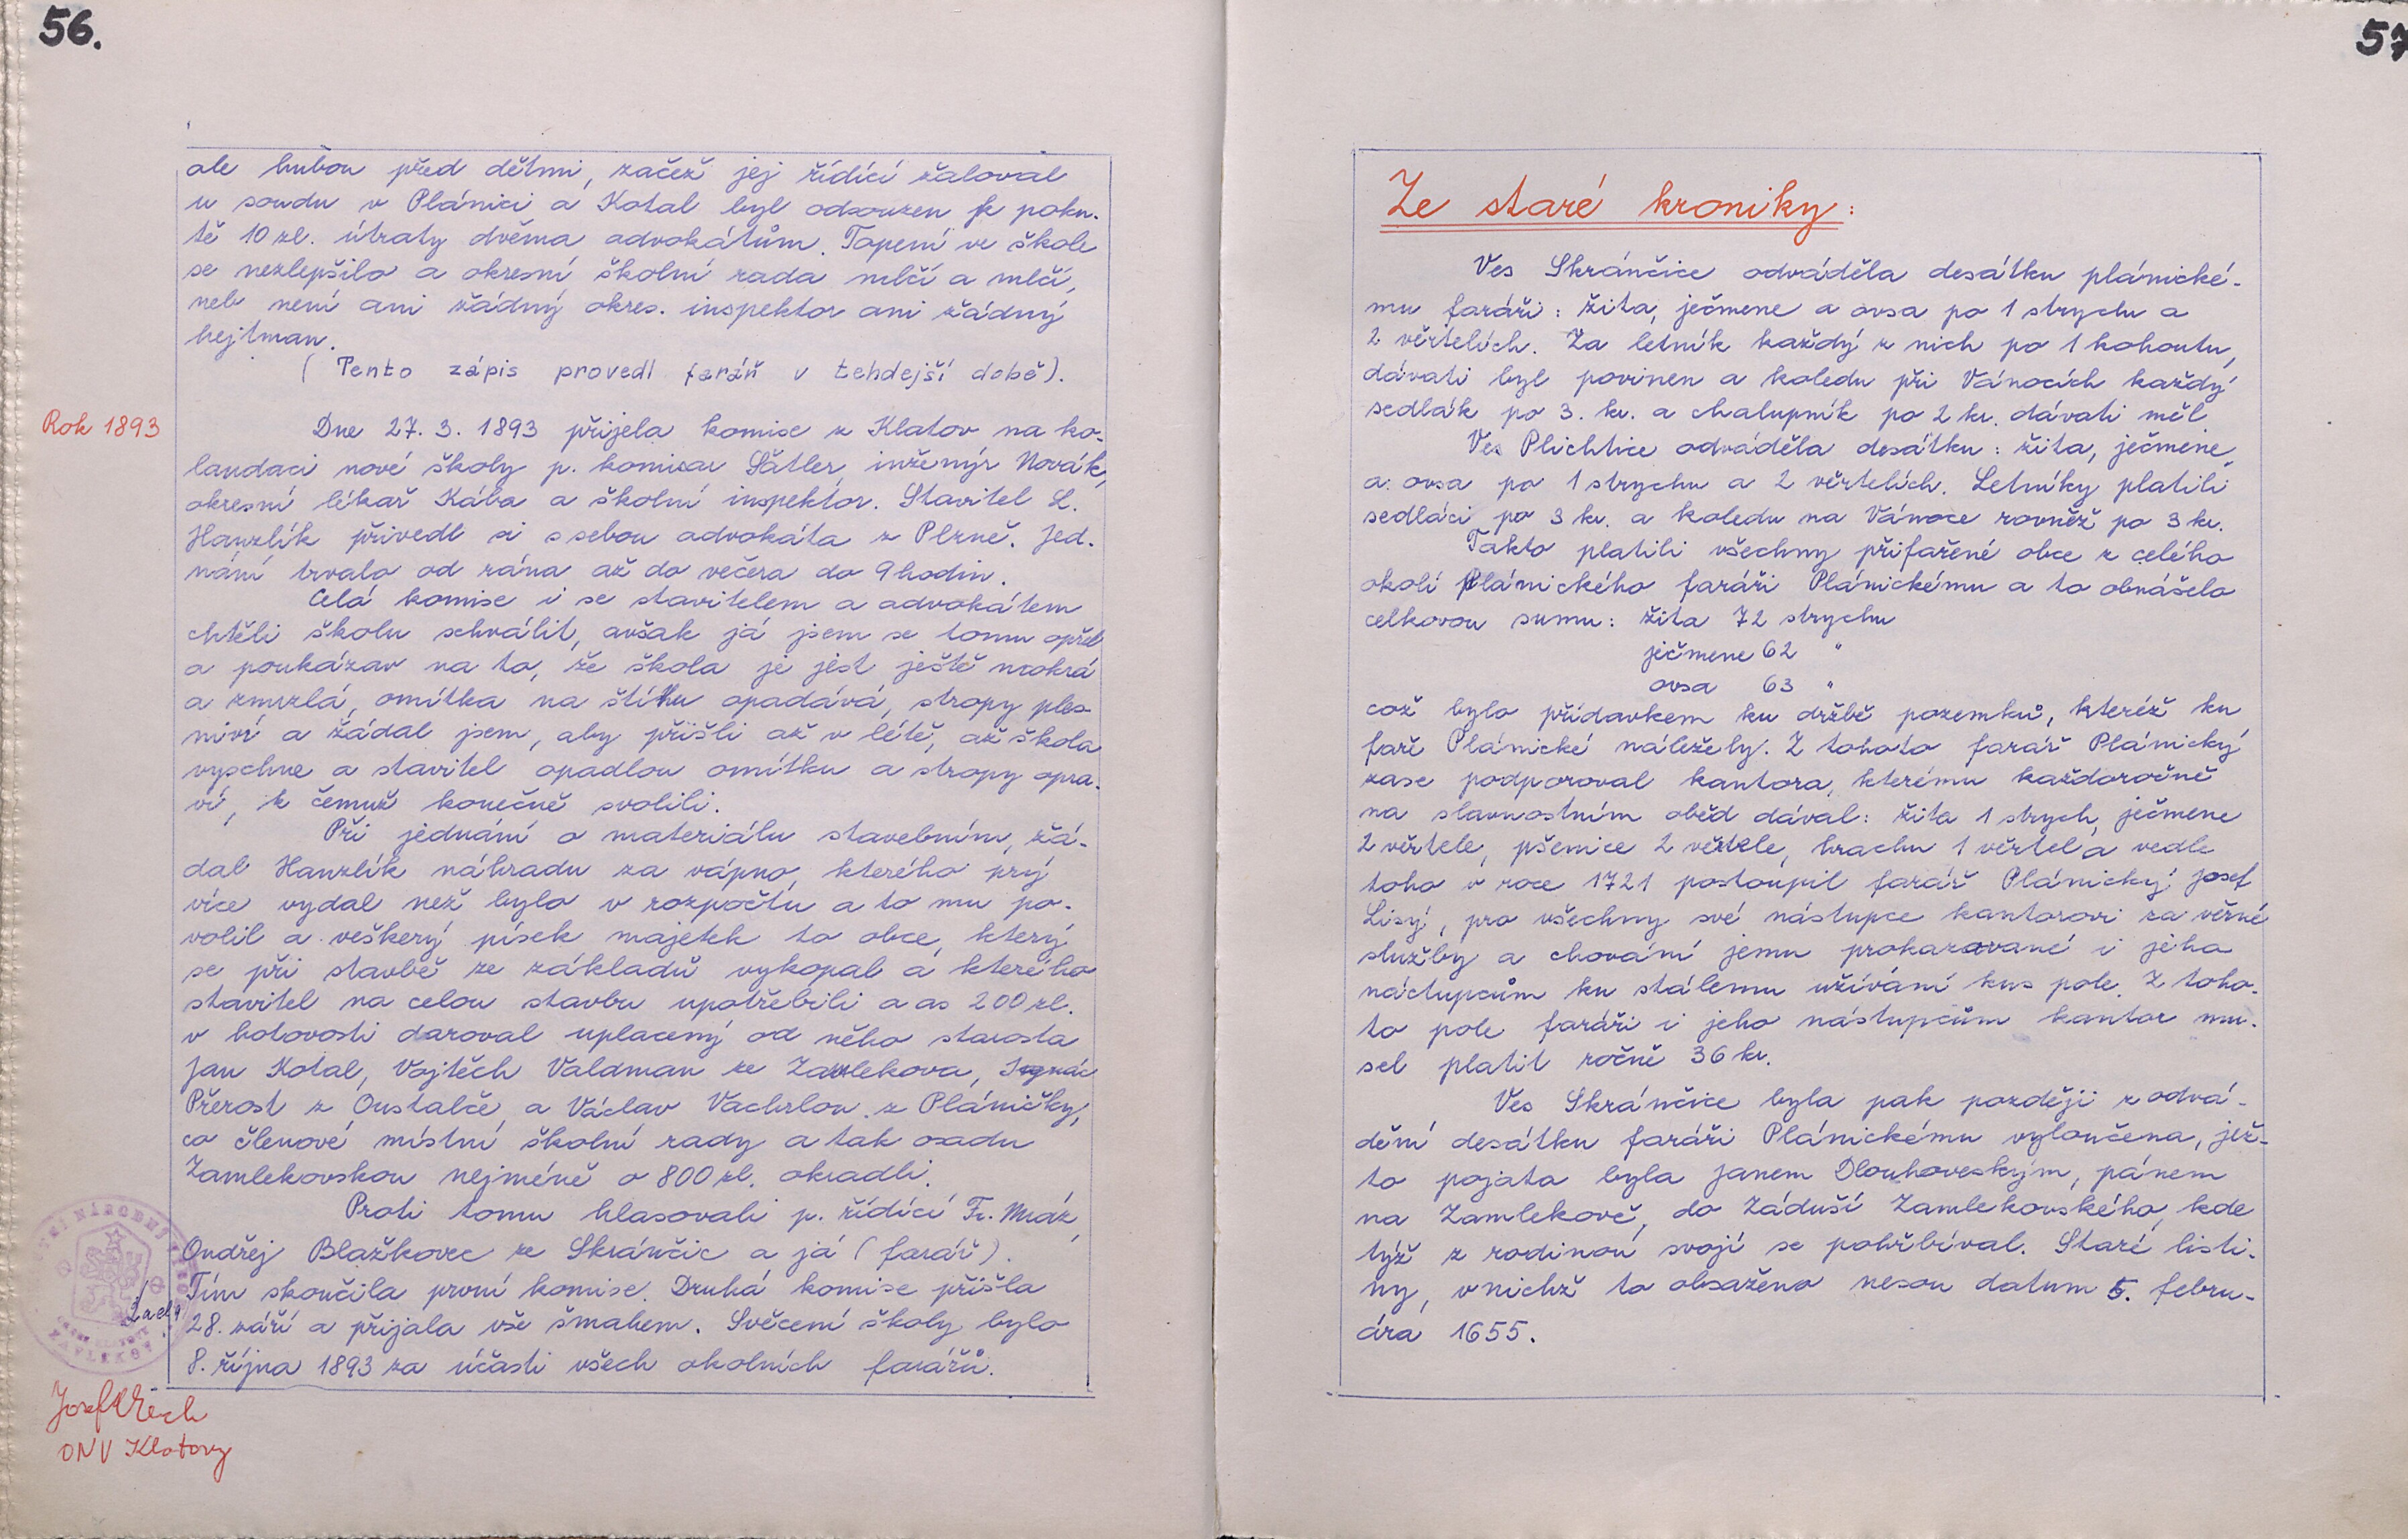 56.
ale hubou před dětmi, začež jej řídící žaloval
u soudu v Plánici a Kotal byl odsouzen k poku-
tě 10 zl. útraty dvěma advokátům. Topení ve škole
se nezlepšilo a okresní školní rada mlčí a mlčí,
neb není ani žádný okres. inspektor ani žádný
hejtman.
( Tento zápis provedl farář v tehdejší době).
Rok 1893
Dne 27. 3. 1893 přijela komise z Klatov na ko-
laudaci nové školy p. komisar Šátler, inženýr Novák,
okresní lékař Kába a školní inspektor. Stavitel L.
Hanzlík přivedl si s sebou advokáta z Plzně. Jed-
nání trvalo od rána až do večera do 9 hodin.
Celá komise i se stavitelem a advokátem
chtěli školu schválit, avšak já jsem se tomu opřel
a poukázav na to, že škola je jest ještě mokrá
a zmrzlá, omítka na štítu opadává, stropy ples-
niví a žádal jsem, aby přišli až v létě, až škola
vyschne a stavitel opadlou omítku a stropy opra-
ví, k čemuž konečně svolili.
Při jednání o materiálu stavebním, žá-
dal Hanzlík náhradu za vápno, kterého prý
více vydal než bylo v rozpočtu a to mu po-
volil a veškerý písek majetek to obce, který
se při stavbě ze základů vykopal a kterého
stavitel na celou stavbu upotřebili a as 200 zl.
v hotovosti daroval uplacený od něho starosta
Jan Kotal, Vojtěch Valdman ze Zamlekova, Ignác
Přerost z Oustalče, a Václav Vachrlon z Pláničky,
co členové místní školní rady a tak osadu
Zamlekovskou nejméně o 800 zl. okradli.
Proti tomu hlasovali p. řídící Fr. Mráz,
Ondřej Blažkovec ze Skránčic a já (farář).
Tím skončila první komise. Druhá komise přišla
28. září a přijala vše šmahem. Svěcení školy bylo
8. října 1893 za účasti všech okolních farářů.
Josef
ONV Klatovy
57
Ze staré kroniky:
Ves Skránčice odváděla desátku plánické-
mu faráři: žita, ječmene a ovsa po 1 strychu a
2 věrtelích. Za letník každý z nich po 1 kohoutu,
dávati byl povinen a koledu při Vánocích každý
sedlák po 3. kr. a chalupník po 2 kr. dávati měl.
Ves Plichtice odváděla desátku: žita, ječmene,
a ovsa po 1 strychu a 2 věrtelích. Letníky platili
sedláci po 3 kr. a koledu na Vánoce rovněž po 3 kr.
Takto platili všechny přifařené obce z celého
okolí Plánického faráři Plánickému a to obnášelo
celkovou sumu: žita 72 strychu
ječmene 62 "
ovsa 63 "
což bylo přídavkem ku držbě pozemků, kteréž ku
faře Plánické náležely. Z tohoto farář Plánický
zase podporoval kantora, kterému každoročně
na slavnostním oběd dával: žita 1 strych, ječmene
2 věrtele, pšenice 2 věrtele, hrachu 1 věrtel a vedle
toho v roce 1721 postoupil farář Plánický Josef
Lisý, pro všechny své nástupce kantorovi za věrné
služby a chování jemu prokazované i jeho
náctupcům ku stálemu užívání kus pole. Z toho-
to pole faráři i jeho nástupcům kantor mu-
sel platit ročně 36 kr.
Ves Skránčice byla pak později z odvá-
dění desátku faráři Plánickému vyloučena, jež-
to pojata byla Janem Dlouhoveským, pánem
na Zamlekově, do Záduší Zamlekovského, kde
týž z rodinou svojí se pohřbíval. Staré listi-
ny, v nichž to obsaženo nesou datum 5. febru-
ára 1655.